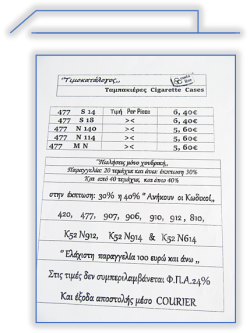 "Τιμοκατάλογος,,
Ταμπακιέρες Cigarette Cases
477 S 14 Τιμή Per Piece 6, 40€
477 S 18 >< 6, 40€
477 N 140 >< 5, 60€
477 N 114 >< 5, 60€
477 M N >< 5, 60€
"Πωλήσεις μόνο χονδρική,,
Παραγγελία: 20 τεμάχια και άνω έκπτωση 30%
Και από 40 τεμάχια, και άνω 40%
στην έκπτωση: 30% η 40% " Ανήκουν οι Κωδικοί,,
420, 477, 907, 906, 910, 912 , 810,
K52 N912, K52 N914 & K52 N614
"Ελάχιστη παραγγελία 100 ευρώ και άνω ,,
Στις τιμές δεν συμπεριλαμβάνεται Φ.Π.Α.24%
Και έξοδα αποστολής μέσο COURIER